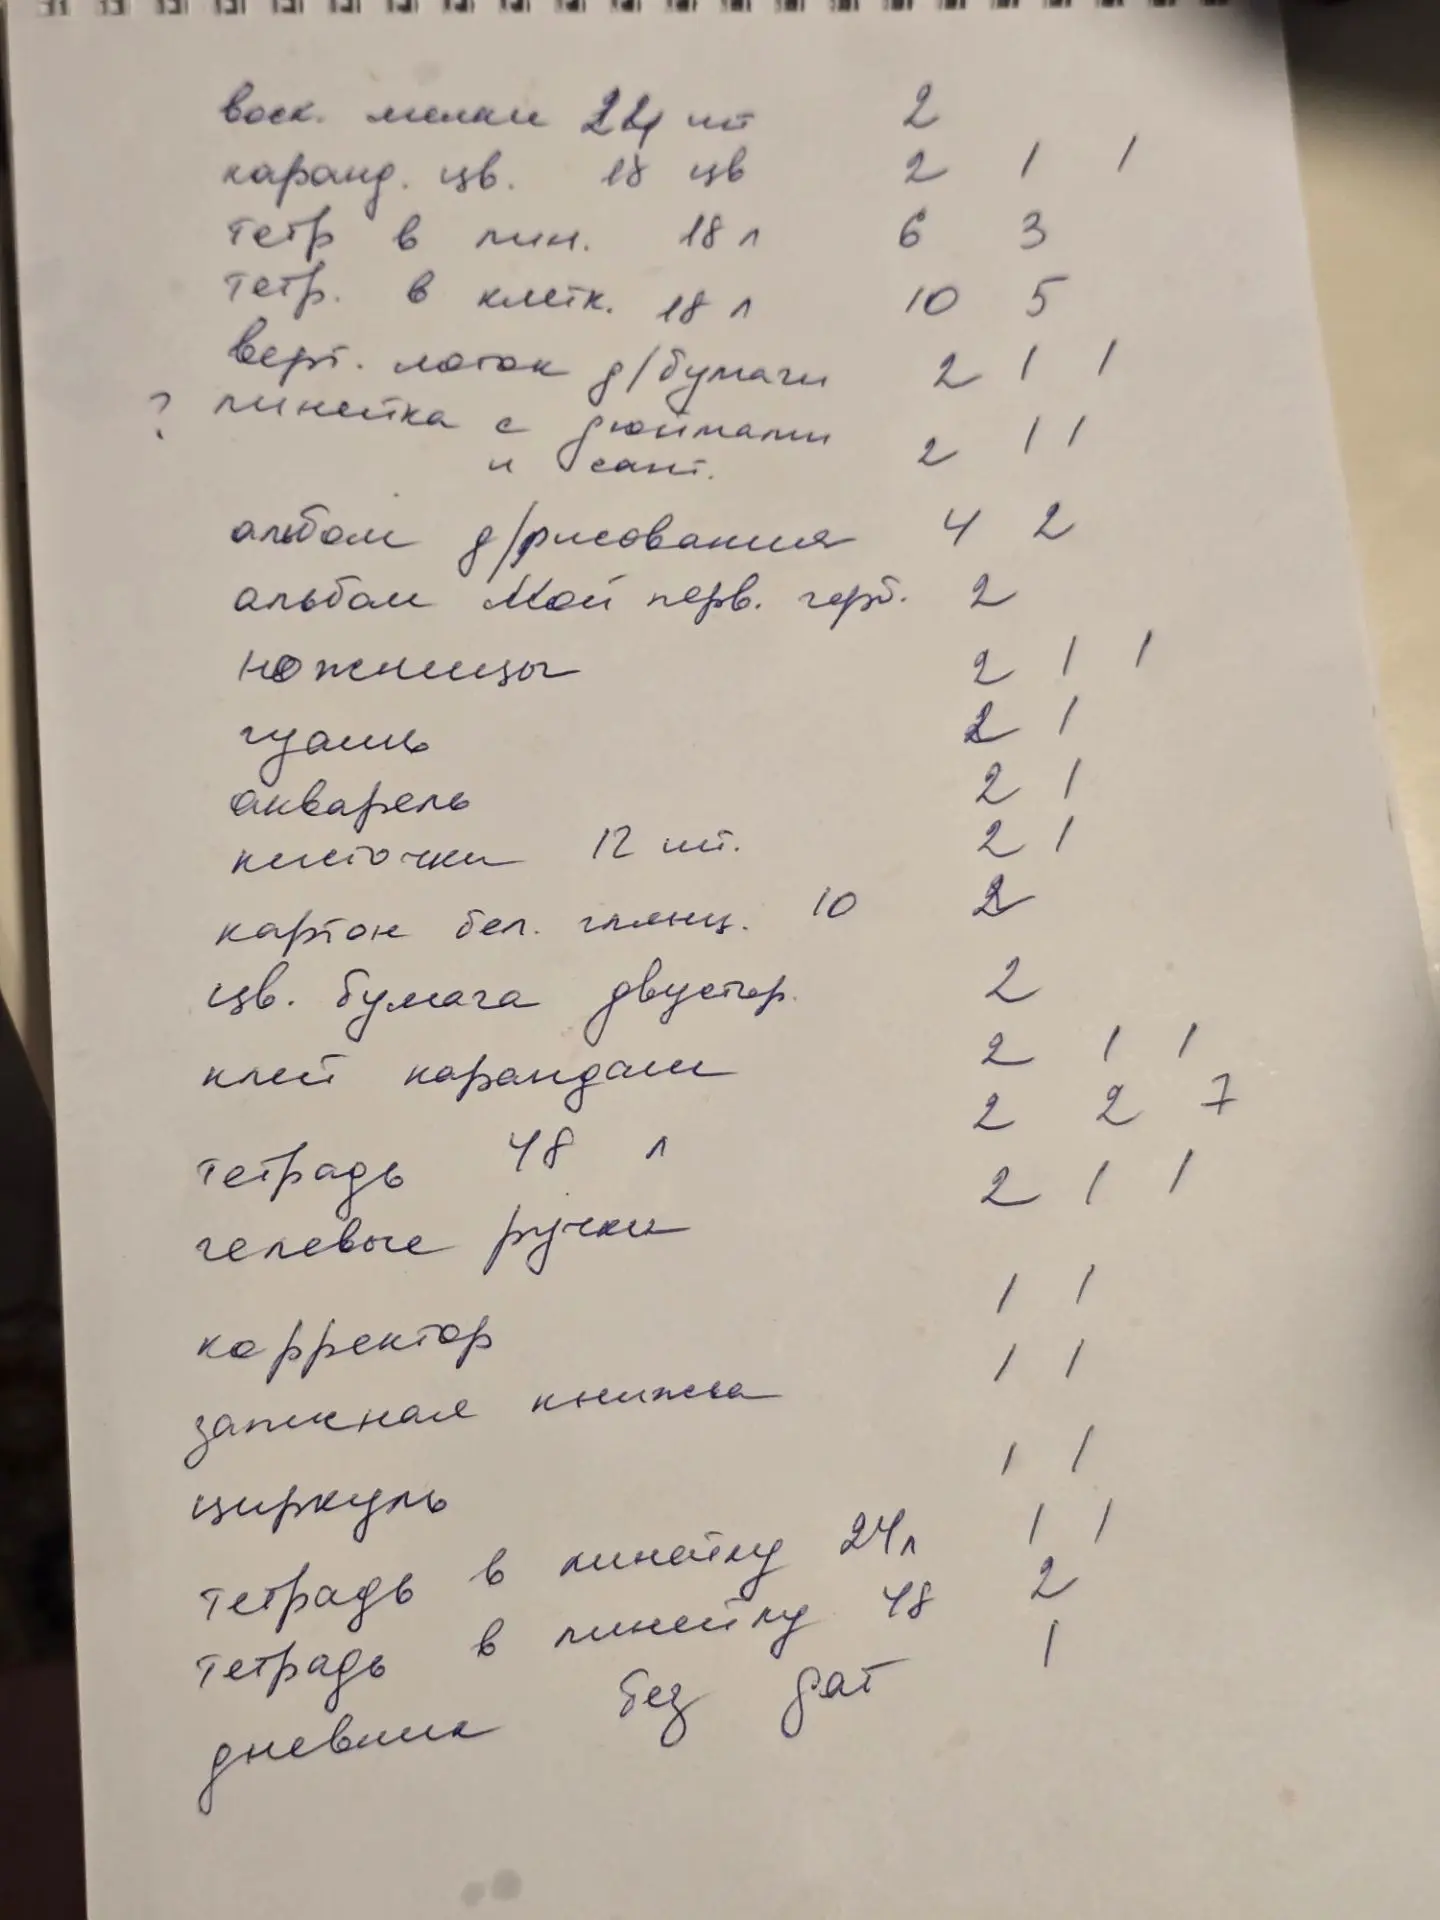 воск. мелки 24 шт 2
каранд. цв. 18 цв 2 1 1
тетр в лин. 18 л 6 3
тетр. в клетк. 18 л 10 5
верт. лоток д/бумаги 2 1 1
? линейка с дюймами 2 1 1
и сант.
альбом д/рисования 4 2
альбом Мой перв. герб. 2
ножницы 2 1 1
гуашь 2 1
акварель 2 1
кисточки 12 шт. 2 1
картон бел. глянц. 10 2
цв. бумага двустор. 2
клей карандаш 2 1 1
тетрадь 48 л 2 2 7
гелевые ручки 2 1 1
корректор 1 1
записная книжка 1 1
циркуль 1 1
тетрадь в линейку 24 л 1 1
тетрадь в линейку 48 2
дневник без дат 1